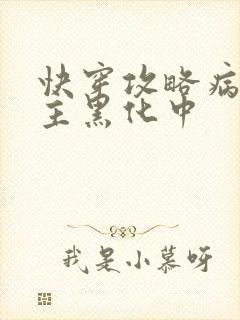 快穿攻略病
主黑化中
我是小慕呀